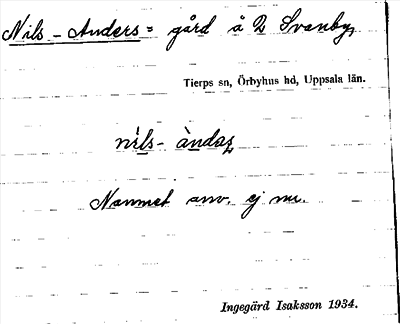 Nils-Anders= gård å 2 Svanby,
Tierps sn, Örbyhus hd, Uppsala län.
nìls- àndaʂ
Namnet anv. ej nu.
Ingegärd Isaksson 1934.